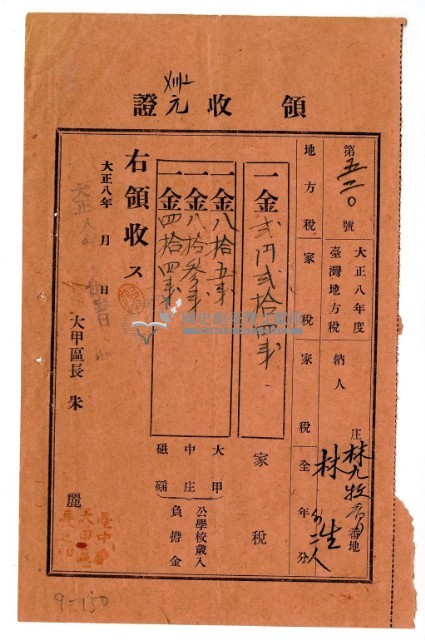 領收證
元
第五二〇號
大正八年度
臺灣地方稅
納人
庄
番地
林九牧
林生
外二人
地方稅家稅家稅全年分
一金貳円貳拾四戔
家稅
一金八拾五戔
大甲
一金八拾參戔
中庄
一金四拾四戔
磁磘
公學校歲入
負擔金
右領收ス
大正八年 月 日
大甲區長 朱麗
9-150